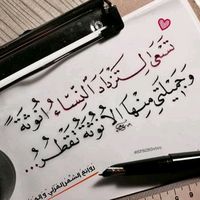 تَسْعَى لِتَزْدَادَ النِّسَاءُ أُنُوثَةً
وَجَمِيلَتِي مِنْهَا الأُنُوثَةُ تَقْطُرُ...
روائع الشعر العربي و